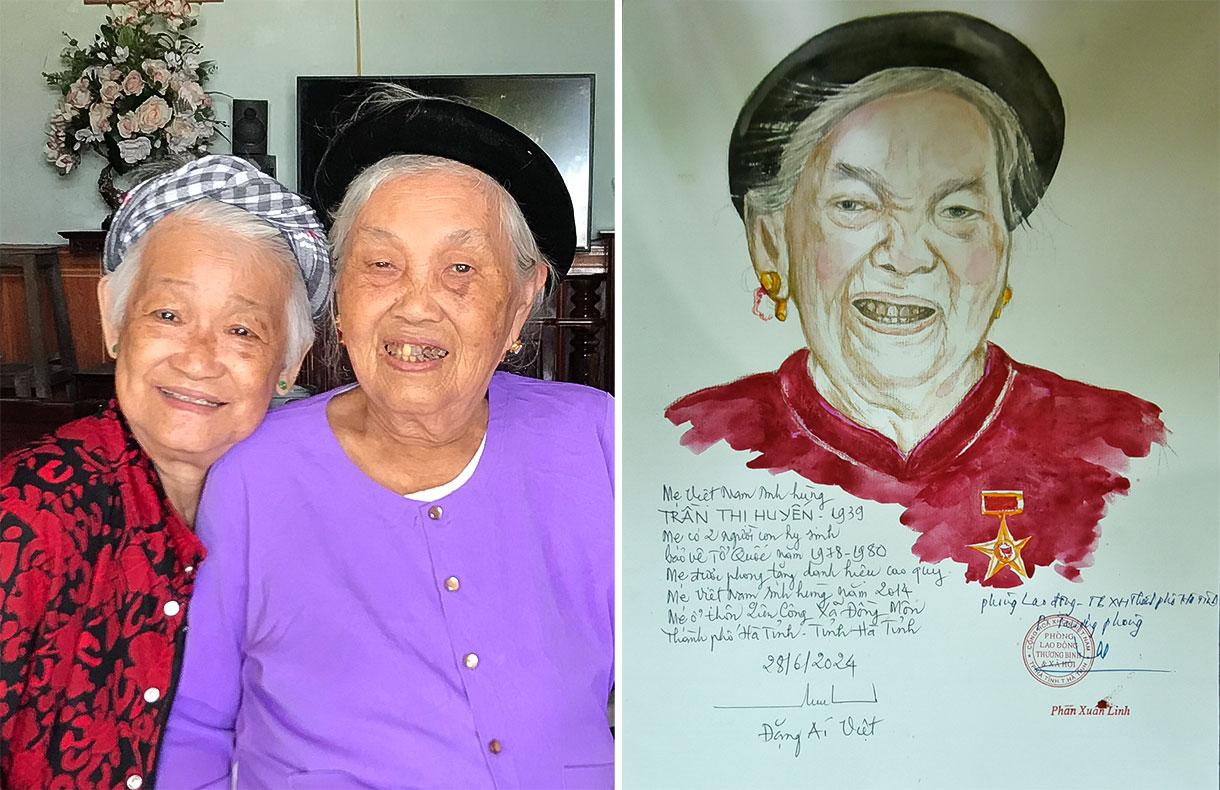 Mẹ Việt Nam anh hùng
TRẦN THỊ HUYÊN - 1939
Mẹ có 2 người con hy sinh
bảo vệ Tổ Quốc năm 1978-1980
Mẹ được phong tặng danh hiệu cao quý
Mẹ Việt Nam anh hùng năm 2014
Mẹ ở thôn Liên Công Xã Đồng Môn
Thành phố Hà Tĩnh - Tỉnh Hà Tĩnh
28/6/2024
Đặng Ái Việt
phòng Lao động - TB XH Thành phố Hà Tĩnh
phòng
PHÒNG
LAO ĐỘNG
THƯƠNG BINH
& XÃ HỘI
TP HÀ TĨNH T. HÀ TĨNH
Phan Xuân Linh